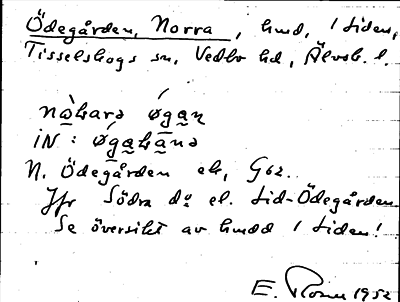 Ödegården, Norra, hmd, i Liden,
Tisselskogs sn, Vedbo hd, Älvsb. l.
nɷ̀harə ǿgan
iN: ǿgahanə
N. Ödegården ek, G62.
Jfr Södra do el. Lid-Ödegården.
Se översikt av hmdd i Liden!
E. 1952